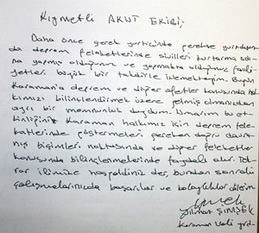 Kıymetli AKUT EKİBİ;
Daha önce gerek yurtiçinde gerekse yurtdışın-
da deprem felaketlerinde sivilleri kurtarma adı-
na yapmış olduğunuz ve yapmakta olduğunuz faali-
yetleri büyük bir takdirle izlemekteyim. Bugün
Karaman'a deprem ve diğer afetler konusunda hal-
kımızı bilinçlendirmek üzere gelmiş olmanızdan
ayrı bir memnunluk duydum. Umarım bu et-
kinliğiniz Karaman halkımız için deprem fela-
ketlerinde göstermeleri gereken doğru davra-
nış biçimleri noktasında ve diğer felaketler
konusunda bilinçlenmelerinde faydalı olur. Tek-
rar ilimize hoşgeldiniz der, bundan sonraki
çalışmalarınızda başarılar ve kolaylıklar dilerim
ŞİMŞEK
Karaman Vali Yrd.